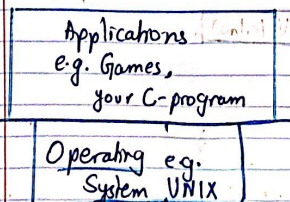 Applications
e.g. Games,
your C-program
Operating e.g.
System UNIX